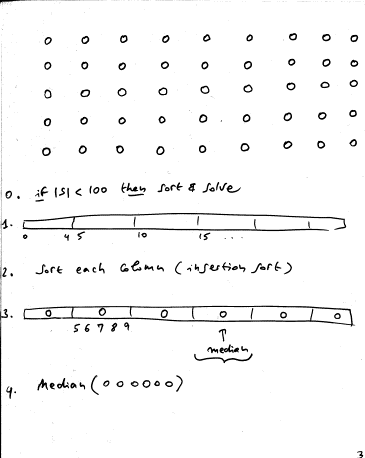 0. if |S| < 100 then sort & solve
1.
0 4 5 10 15 ...
2. Sort each column (insertion sort)
3. 0 0 0 0 0 0
5 6 7 8 9
↑
median
4. Median (0 0 0 0 0 0)
3